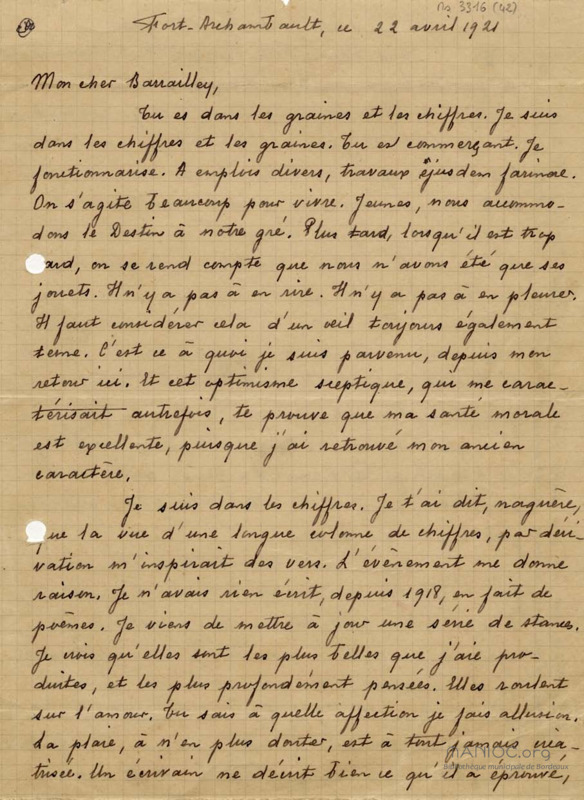 Ms 3316 (42)
Fort-Archambault, ce 22 avril 1921
Mon cher Barrailley,
Tu es dans les graines et les chiffres. Je suis
dans les chiffres et les graines. Tu es commerçant. Je
fonctionnarise. A emplois divers, travaux ejusdem farinae.
On s'agite beaucoup pour vivre. Jeunes, nous accommo-
dons le Destin à notre gré. Plus tard, lorsqu'il est trop
ard, on se rend compte que nous n'avons été que ses
jouets. Il n'y a pas à en rire. Il n'y a pas à en pleurer.
Il faut considérer cela d'un œil toujours également
terne. C'est ce à quoi je suis parvenu, depuis mon
retour ici. Et cet optimisme sceptique, qui me carac-
térisait autrefois, te prouve que ma santé morale
est excellente, puisque j'ai retrouvé mon ancien
caractère.
Je suis dans les chiffres. Je t'ai dit, naguère,
que la vue d'une longue colonne de chiffres, par déri-
vation m'inspirait des vers. L'évènement me donne
raison. Je n'avais rien écrit, depuis 1918, en fait de
poèmes. Je viens de mettre à jour une série de stances.
Je crois qu'elles sont les plus belles que j'aie pro-
duites, et les plus profondément pensées. Elles roulent
sur l'amour. Tu sais à quelle affection je fais allusion.
La plaie, à n'en plus douter, est à tout jamais cica-
trisée. Un écrivain ne décrit bien ce qu'il a éprouvé,
MANIOC.org
Bibliothèque municipale de Bordeaux